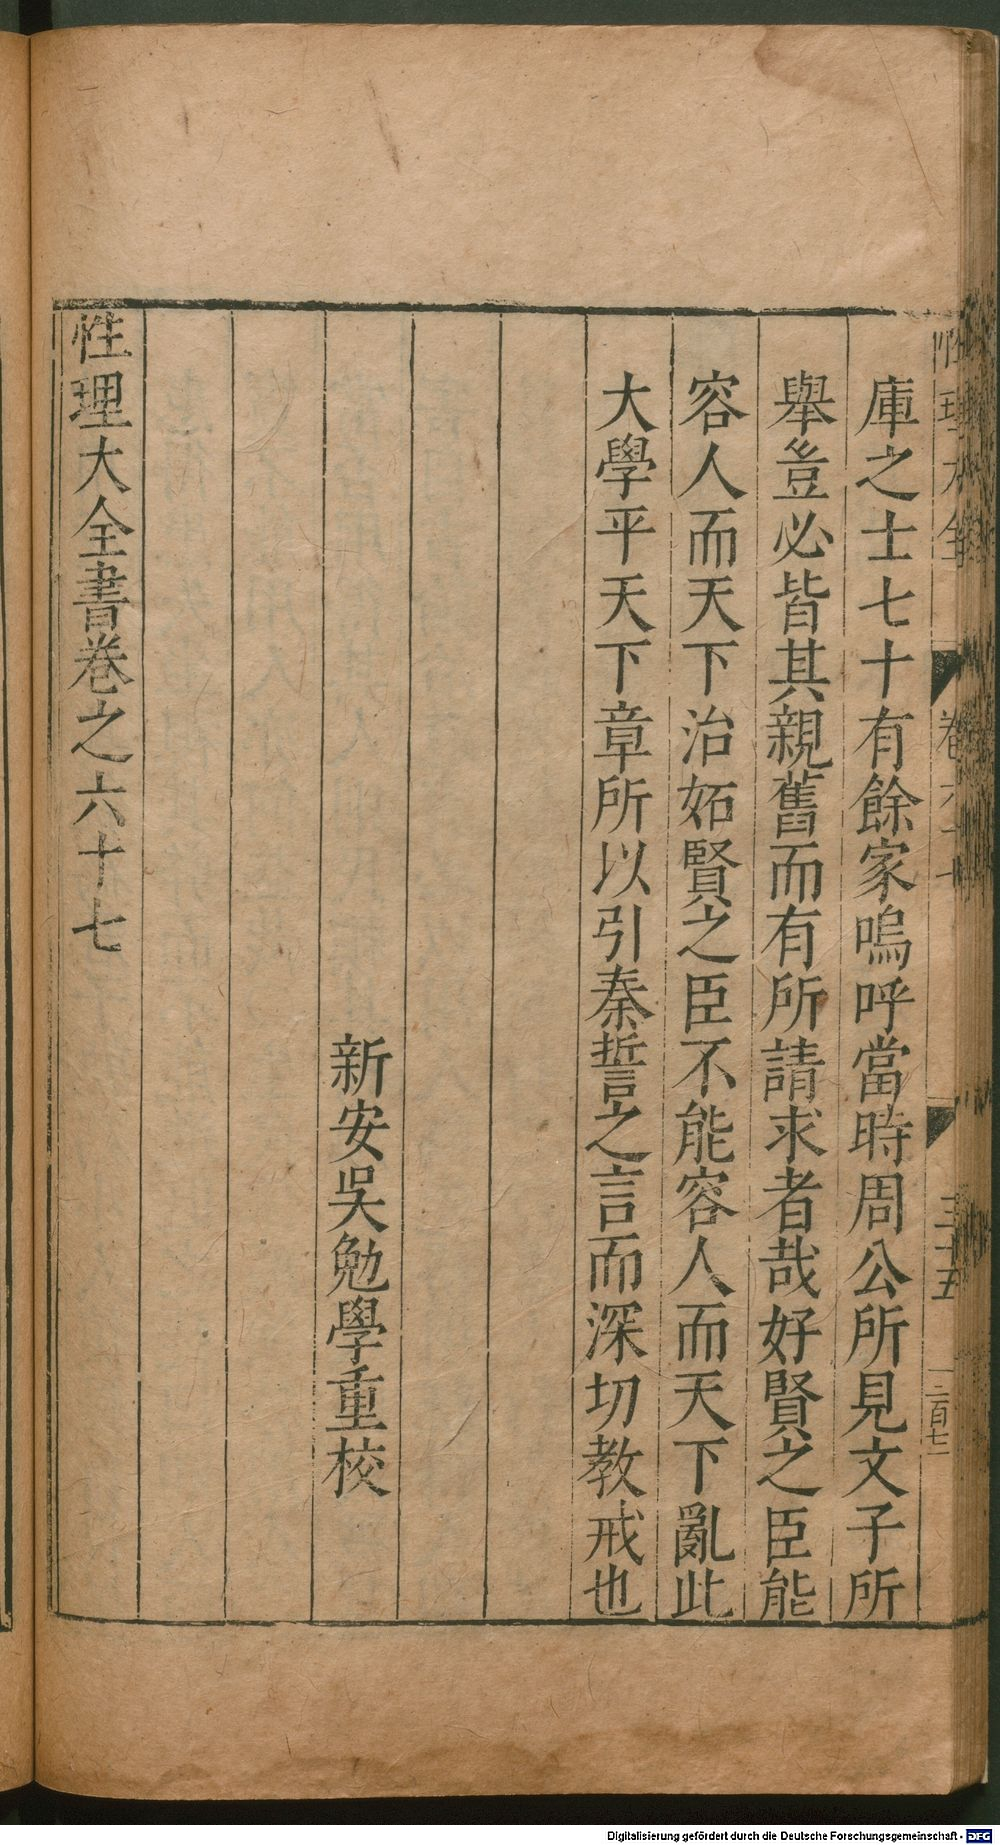 性理大全 卷六十七 三十五 二百七
庫之士七十有餘家嗚呼當時周公所見文子所
舉豈必皆其親舊而有所請求者哉好賢之臣能
容人而天下治妬賢之臣不能容人而天下亂此
大學平天下章所以引秦誓之言而深切教戒也
新安吳勉學重校
性理大全書卷之六十七
Digitalisierung gefördert durch die Deutsche Forschungsgemeinschaft - DFG